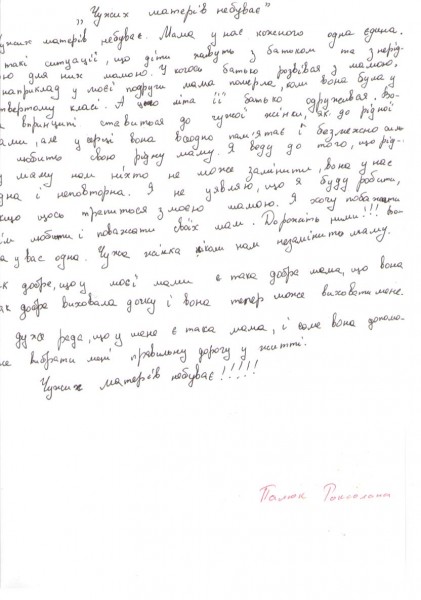 „Чужих матерів небуває"
ужих матерів небуває. Мама у нас кожного одна єдина.
такі ситуації, що діти живуть з батьком та з нерід-
ою для них мамою. У когось батько розвівся з мамою,
наприклад у моєї подруги мама померла, коли вона була у
твертому класі. А цього літа її батько одружився. Во-
а впринципі ставиться до чужої жінки, як до рідної
ами, але у серці вона всеодно пам'ятає і безмежно силь-
любить свою рідну маму. Я веду до того, що рід-
у маму нам ніхто не може замінити, вона у нас
дна і неповторна. Я не уявляю, що я буду робити,
кщо щось трапиться з моєю мамою. Я хочу побажати
ім любити і поважати своїх мам. Дорожіть ними!!! Во-
а у вас одна. Чужа жінка ніколи нам незамінить маму.
к добре, що у моєї мами є така добра мама, що вона
ак добре виховала дочку і вона тепер може виховати мене.
дуже рада, що у мене є така мама, і саме вона допомо-
же вибрати мені правильну дорогу у житті.
Чужих матерів небуває!!!!!
Роксолана